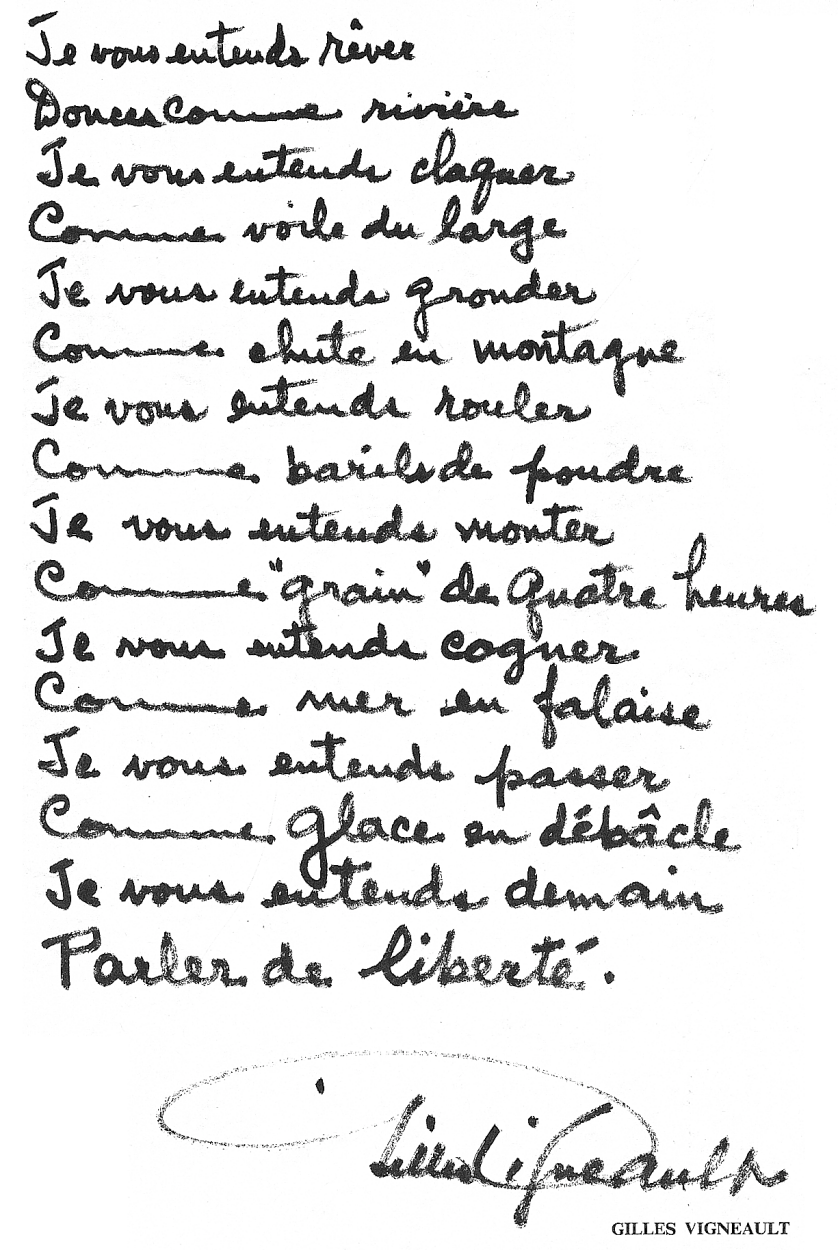 Je vous entends rêver
Douces comme rivière
Je vous entends claquer
Comme voile du large
Je vous entends gronder
Comme chute en montagne
Je vous entends rouler
Comme barils de poudre
Je vous entends monter
Comme "grain" de quatre heures
Je vous entends cogner
Comme mer en falaise
Je vous entends passer
Comme glace en débâcle
Je vous entends demain
Parler de liberté.
Gilles Vigneault
GILLES VIGNEAULT